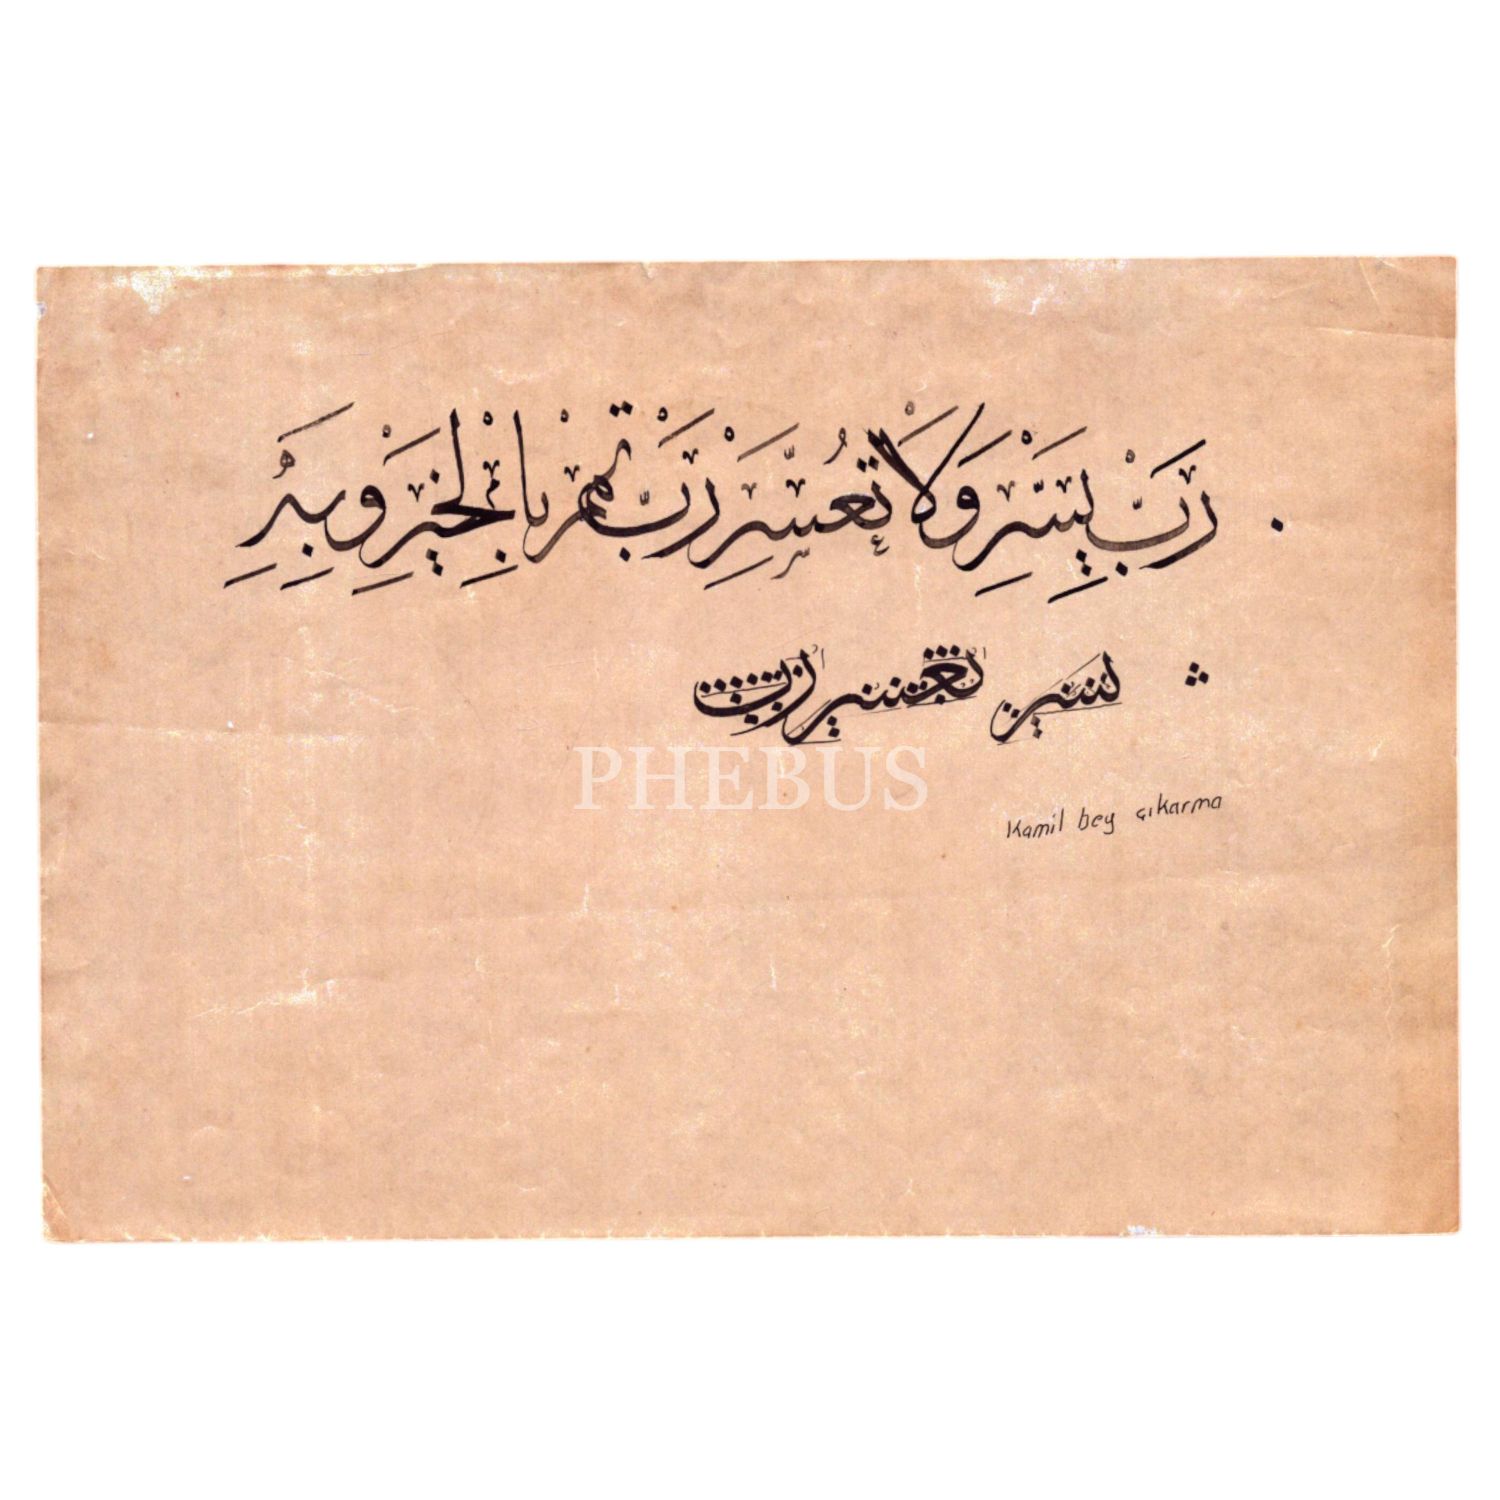 رَبِّ يَسِّرْ وَلَا تُعَسِّرْ رَبِّ تَمِّمْ بِالْخَيْرِ وَبِهِ
يسر تعسر رب
PHEBUS
Kamil bey çıkarma